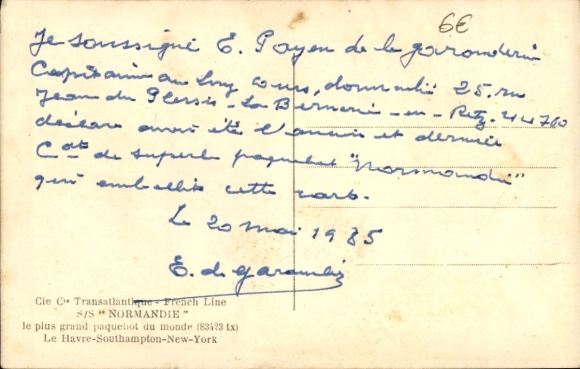 6€
Je soussigné E. Payen de la Garanderie
Capitaine au long cours, domicilié 25. rue
Jean du Plessis - La Bernerie - en - Retz. 44760
déclare avoir été l'ancien et dernier
Cdt de superbe paquebot "Normandie"
qui embellit cette carte.
Le 20 mai 1985
E. de Garanderie
Cie Gle Transatlantique - French Line
S/S "NORMANDIE"
le plus grand paquebot du monde (83423 tx)
Le Havre-Southampton-New-York